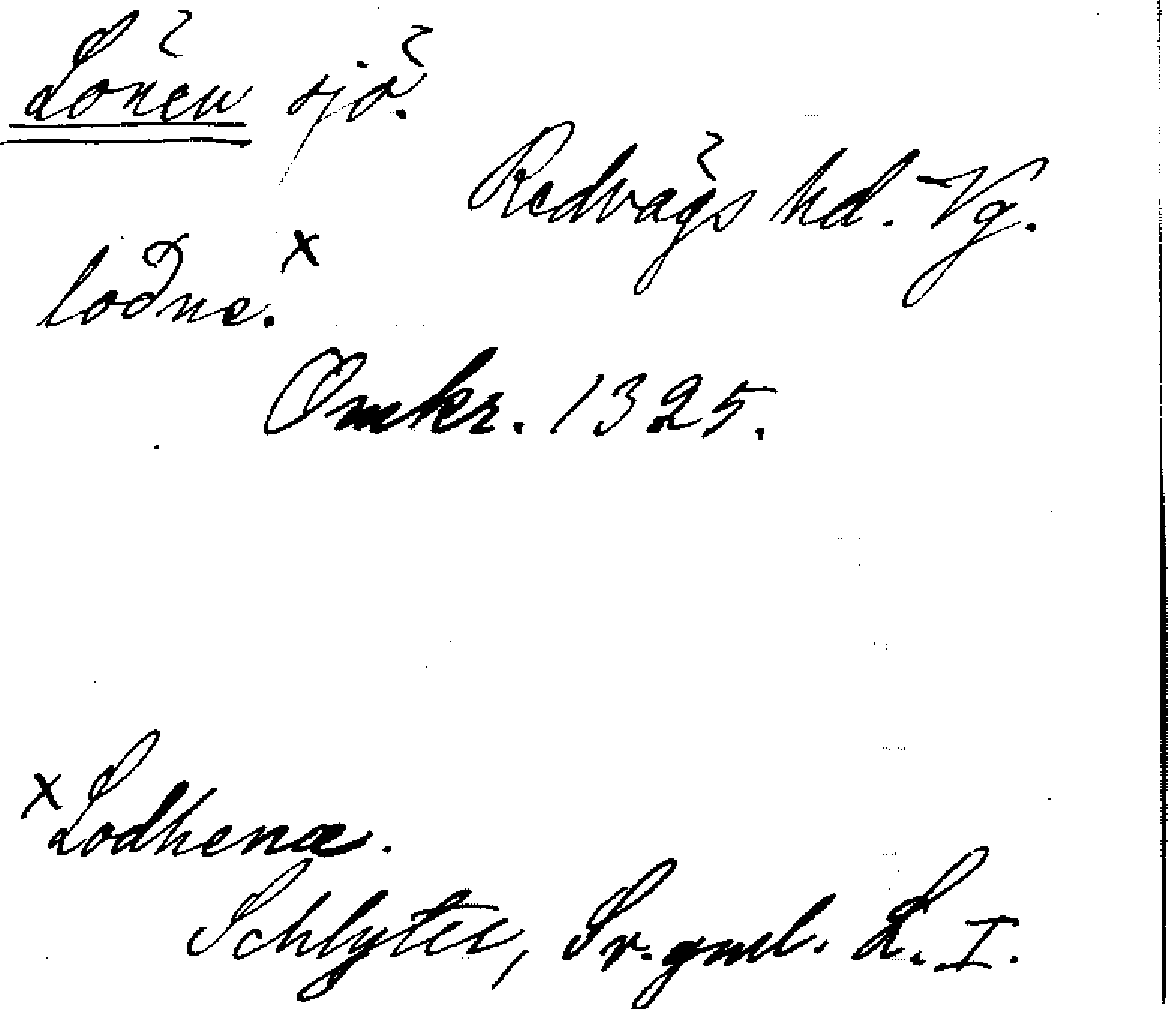 Lönen sjö.
Redvägs hd. Vg.
loðne.x
Omkr. 1325.
xLodhenæ.
Schlyter, Sv. gml. L. I.